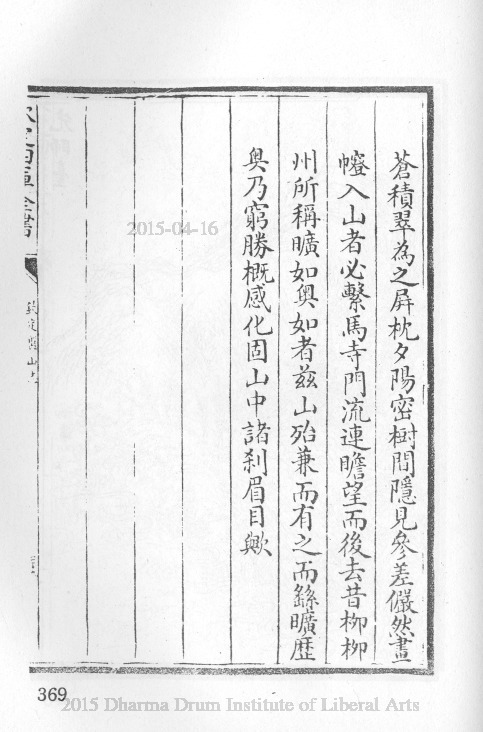 蒼積翠為之屏枕夕陽密樹間隱見參差儼然畫
幰入山者必繫馬寺門流連瞻望而後去昔柳柳
州所稱曠如奧如者兹山殆兼而有之而繇曠歴
奧乃窮勝概感化固山中諸刹眉目歟
2015-04-16
369
2015 Dharma Drum Institute of Liberal Arts